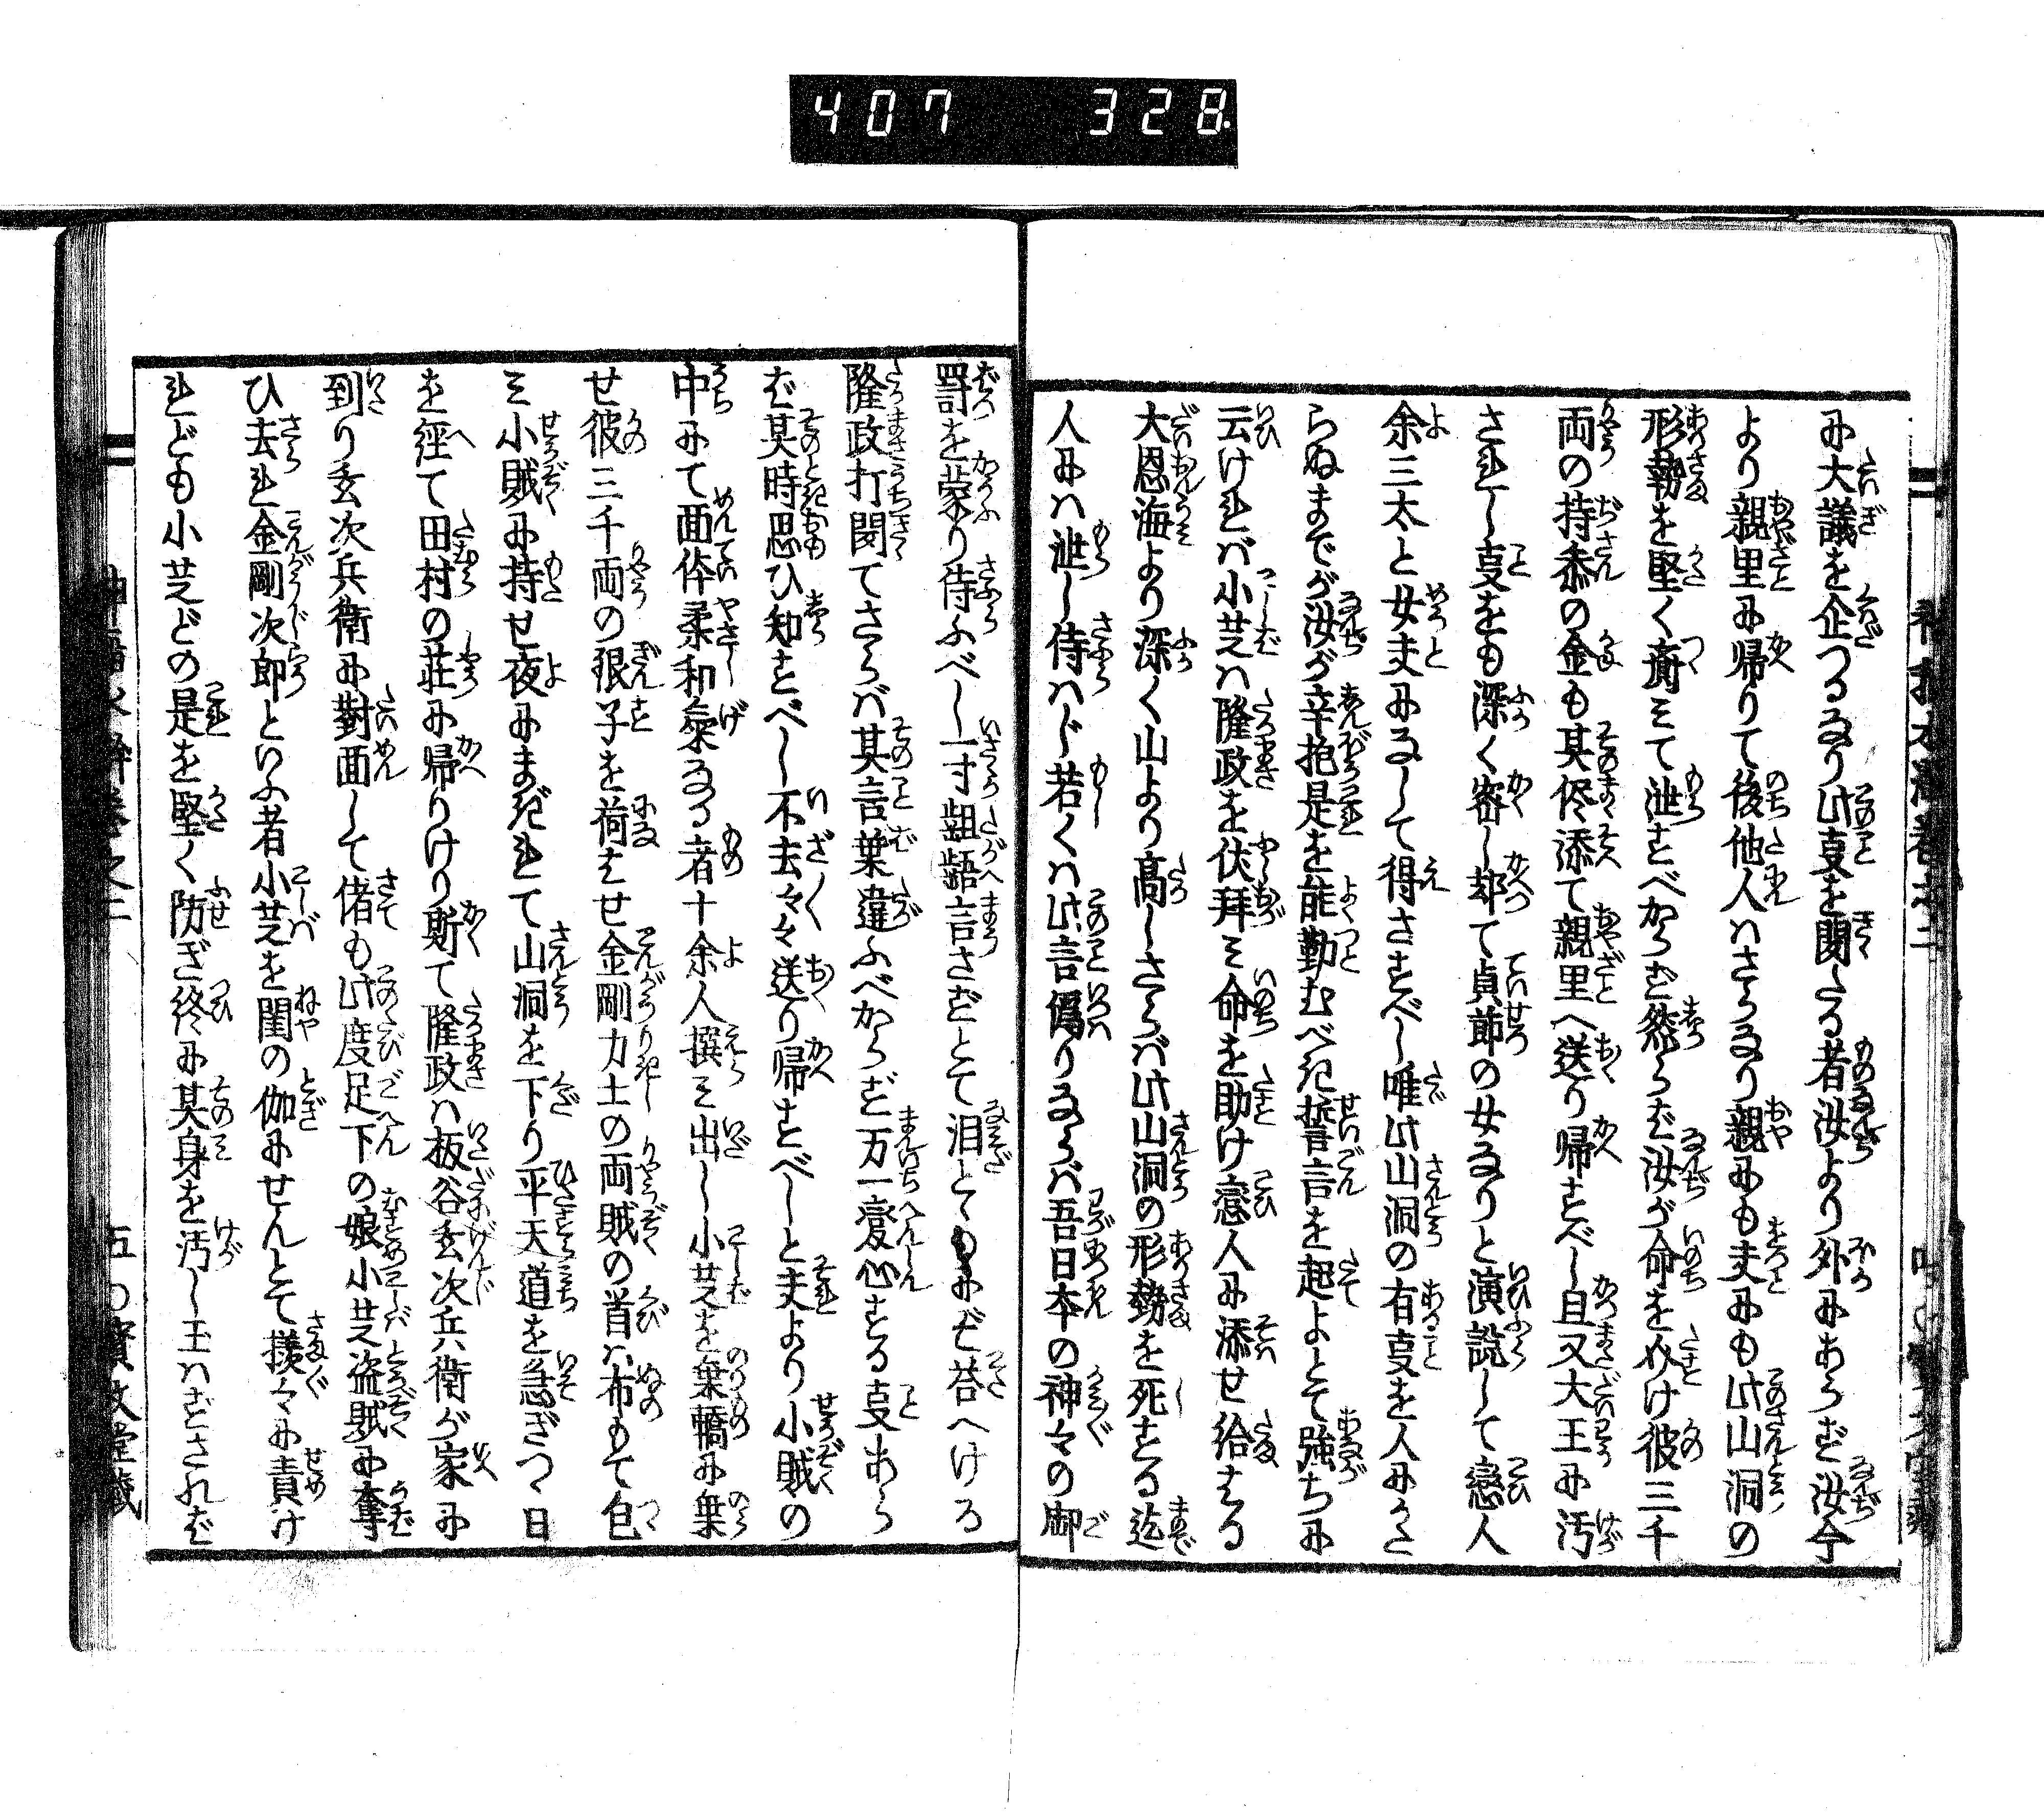 407 328
に大議を企つるなり此事を聞たる者汝より外にあらず汝今
より親里に帰りて後他人はさらなり親にも夫にも此山洞の
形勢を堅く慎みて泄すべからず然らず汝が命を助け彼三千
両の持参の金も其侭添て親里へ送り帰すべし且又大王に汚
されし事をも深く密し却て貞節の女なりと演説して恋人
余三太と女夫になして得さすべし唯此山洞の有事を人にかた
らぬまでが汝が辛抱是を能勤むべき誓言を起よとて強ちに
云ければ小芝は隆政を伏拝み命を助け恋人に添せ給はる
大恩海より深く山より高しさらば此山洞の形勢を死する迄
人には泄し侍はじ若くは此言偽りならば吾日本の神々の御
罰を蒙り侍ふべし一寸齟齬言さずとて泪とゝもにぞ荅へける
隆政打聞てさらば其言葉違ふべからず万一変心する事あら
ば其時思ひ知すべし不去々々送り帰すべしと夫より小賊の
中にて面体柔和気なる者十余人撰み出し小芝を乗轎に乗
せ彼三千両の銀子を荷はせ金剛力士の両賊の首は布もて包
み小賊に持せ夜にまぎれて山洞を下り平天道を急ぎつゝ日
を経て田村の荘に帰りけり斯て隆政は板谷玄次兵衛が家に
到り玄次兵衛に対面して偖も此度足下の娘小芝盗賊に奪
ひ去れ金剛次郎といふ者小芝を閨の伽にせんとて様々に責け
れども小芝どの是を堅く防ぎ終に其身を汚し玉はずされば